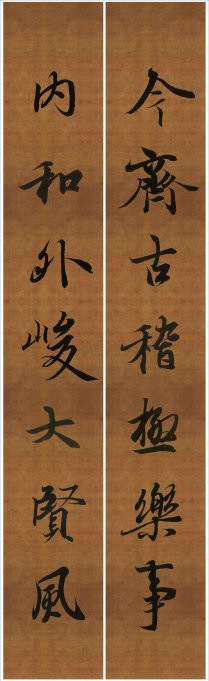 今齊古稽極樂事
內和外峻大賢風